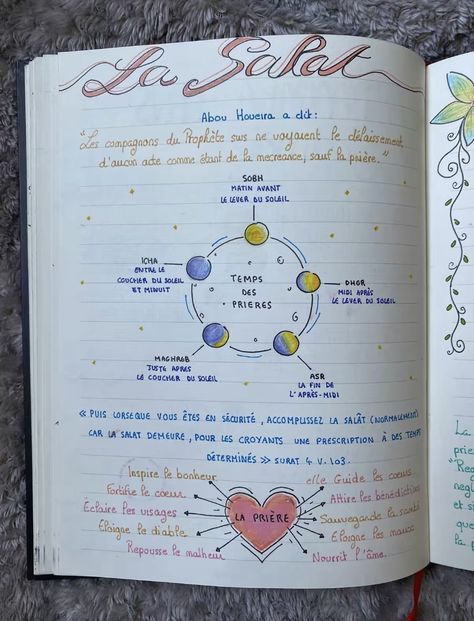 La Salat
Abou Houeira a dit:
"Les compagnons du Prophète sws ne voyaient le délaissement
d'aucun acte comme étant de la mecreance, sauf la prière."
SOBH
MATIN AVANT
LE LEVER DU SOLEIL
ICHA
ENTRE LE
COUCHER DU SOLEIL
ET MINUIT
TEMPS
DES
PRIERES
DHOR
MIDI APRÈS
LE LEVER DU SOLEIL
MAGHREB
JUSTE APRES
LE COUCHER DU SOLEIL
ASR
LA FIN DE
L'APRÈS-MIDI
« PUIS LORSEQUE VOUS ÊTES EN SÉCURITÉ, ACCOMPLISSEZ LA SALÂT (NORMALEMENT)
CAR LA SALAT DEMEURE, POUR LES CROYANTS UNE PRESCRIPTION À DES TEMPS
DÉTERMINÉS » SURAT 4 V.103.
Inspire le bonheur
Fortifie le coeur
Éclaire les visages
Éloigne le diable
Repousse le malheur
LA PRIÈRE
elle Guide les coeurs
Attire les bénédictions
Sauvegarde la santé
Éloigne les maux
Nourrit l'âme.
La
prie
"Re
negl
et si
que
la p